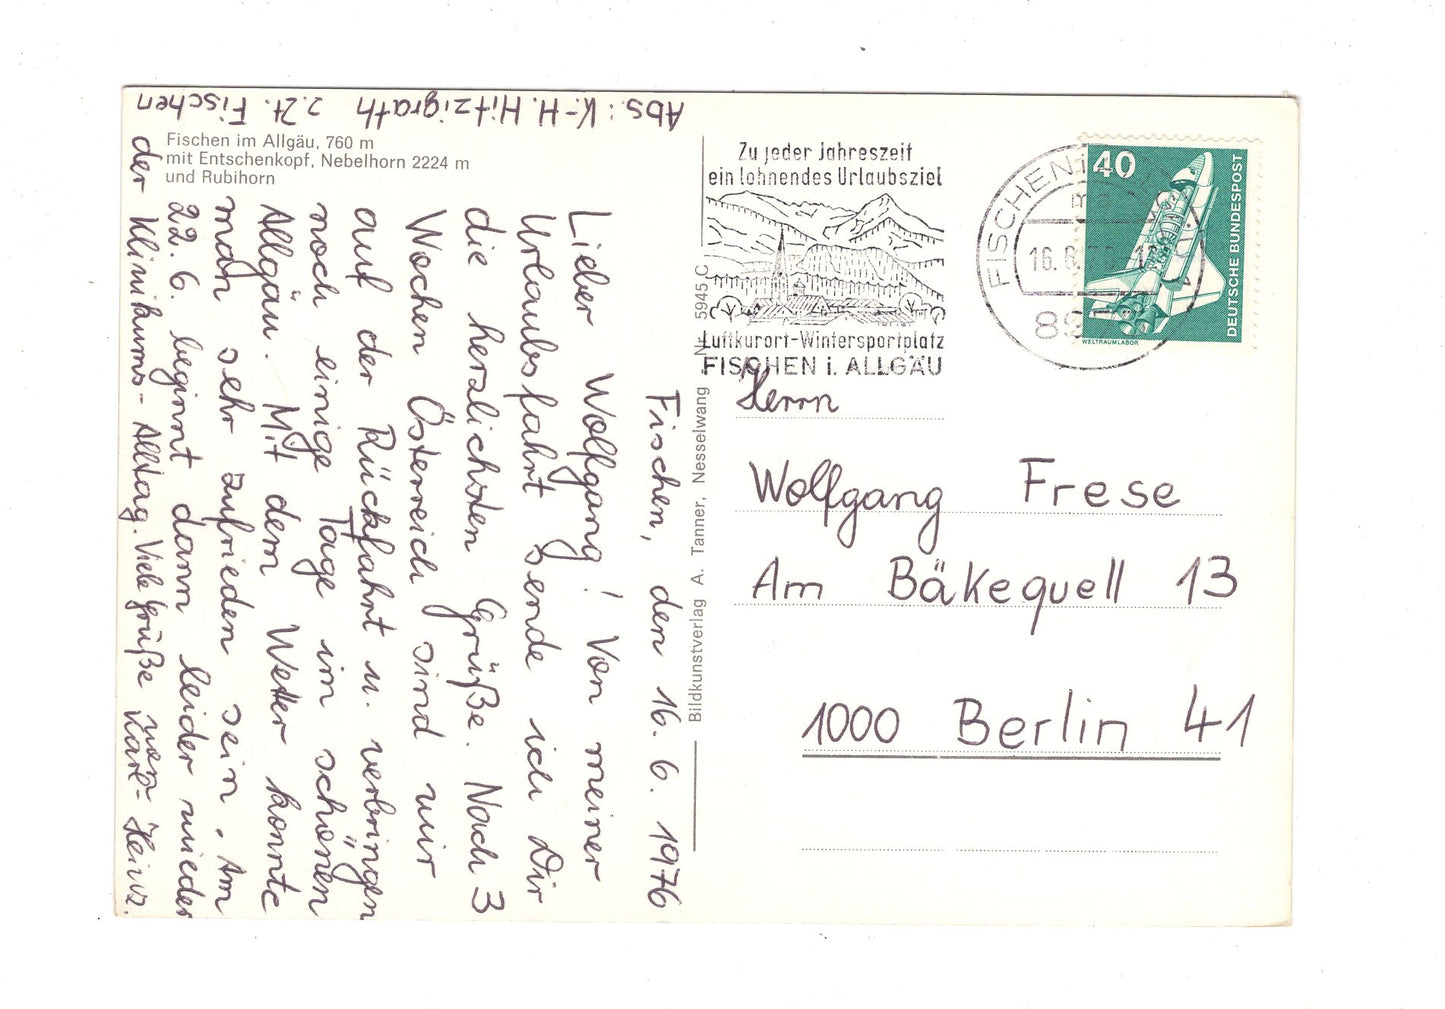 Abs.: K.-H. Hitzigrath z.Zt. Fischen
Fischen im Allgäu, 760 m
mit Entschenkopf, Nebelhorn 2224 m
und Rubihorn
Fischen, den 16. 6. 1976
Lieber Wolfgang! Von meiner
Urlaubsfahrt sende ich Dir
die herzlichsten Grüße. Nach 3
Wochen Österreich sind wir
auf der Rückfahrt u. verbringen
noch einige Tage im schönen
Allgäu. Mit dem Wetter konnte
man sehr zufrieden sein. Am
22. 6. beginnt dann leider wieder
der Klinikums-Alltag. Viele Grüße von
Karl-Heinz.
Bildkunstverlag A. Tanner, Nesselwang Nr. 5945 C
Zu jeder Jahreszeit
ein lohnendes Urlaubsziel
Luftkurort-Wintersportplatz
FISCHEN i. ALLGÄU
FISCHEN i
16. 6.
40
DEUTSCHE BUNDESPOST
WELTRAUMLABOR
Herrn
Wolfgang Frese
Am Bäkequell 13
1000 Berlin 41